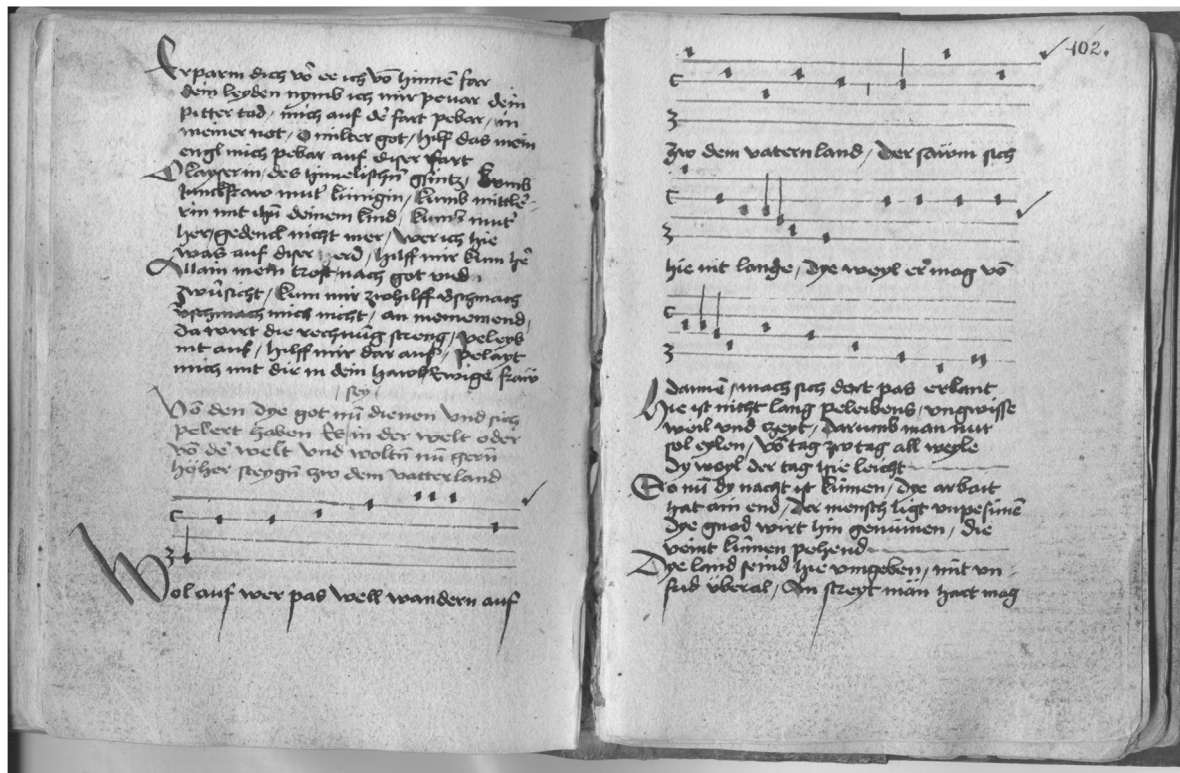 Erparm dich vō ee ich vō hinnē far
dein leyden nymb ich mir pevar dein
pitter tod / mich auf dē fart pebar / in
meiner not / O milter got / hilf das mein
engl mich pebar auf diser fart
Kayserin / des himelischn / kumb
Junckfraw muter künigin / kumb mittle-
rin mit deinem kind / kumb mut
her / gedenck nicht mer / wer ich hie
was auf diser erd / hilff mir kum he
Allain mein trost / nach got und
zwūsicht / kum mir zwhilff
vschmach mich nicht / an meinem end /
da wirt die rechnūg streng / peleyb
nit auf / hilff mir dar auf / pelayt
mich mit dir in dein haws Ewige fraw
/ sey /
Vō den dye got nū dienen und sich
pekert haben Es / in der welt oder
vō dē welt und woltn nū gern
höher steygn zw dem vatterland
Wol auf wer pas well wandern auf
102.
zw dem vatern land / der sawm sich
hie nit lange / dye weyl er mag vō
dannē / mach sich dort pas erkant
Hie ist nicht lang peleibens / ungwisse
weil und zeyt / darumb man mit
sol eylen / vō tag zw tag all weyle
dy weyl der tag hie leicht
So nū dy nacht ist kūmen / dye arbait
hat ain end / der mensch ligt unpesūnē
dye gnad wirt hin genūmen / die
veint kūmen pehend
Dye land seind hie umgeben / mit un-
frid überal / An streyt man hart mag